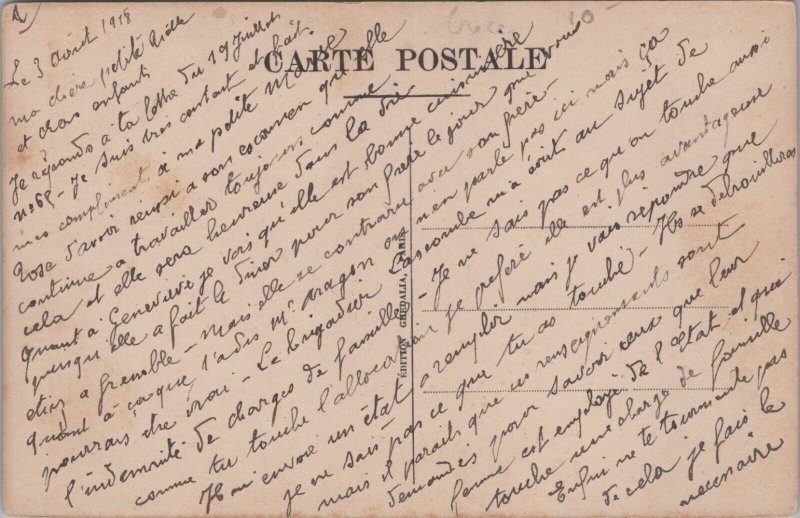 A
Le 3 août 1918
CARTE POSTALE
ma chère petite
et chers enfants
Je réponds à ta lettre du 19 juillet
n° 65 - Je suis très content et fait
mes compliments à ma petite Marie
Rose d'avoir réussi a son examen qu'elle
continue a travailler toujours comme
cela et elle sera heureuse dans la vie
Quant a Geneviève je vois qu'elle est bonne cuisinière
puisqu'elle a fait le diner pour son frère le jour que vous
étiez a Grenoble - Mais elle se contrarie avec son frère -
Quant à ce que t'a dis Mr Aragon on n'en parle pas ici mais ça
pourrais être vrai - Le brigadier Lascombe m'a écrit au sujet de
l'indemnité de charges de famille - Je ne sais pas ce qu'on touche aussi
comme tu touche l'allocation je préfère elle est plus avantageuse
Ils on envoie un état a remplir mais je vais répondre que
je ne sais pas ce que tu as touché - Ils se débrouilleras
mais il parait que ces renseignements sont
demandés pour savoir ceux que leur
femme est employé de l'état et qui
touche une charge de famille
Enfin ne te tourmente pas
de cela je fais le
nécessaire
ÉDITION GHEDALIA, PARIS